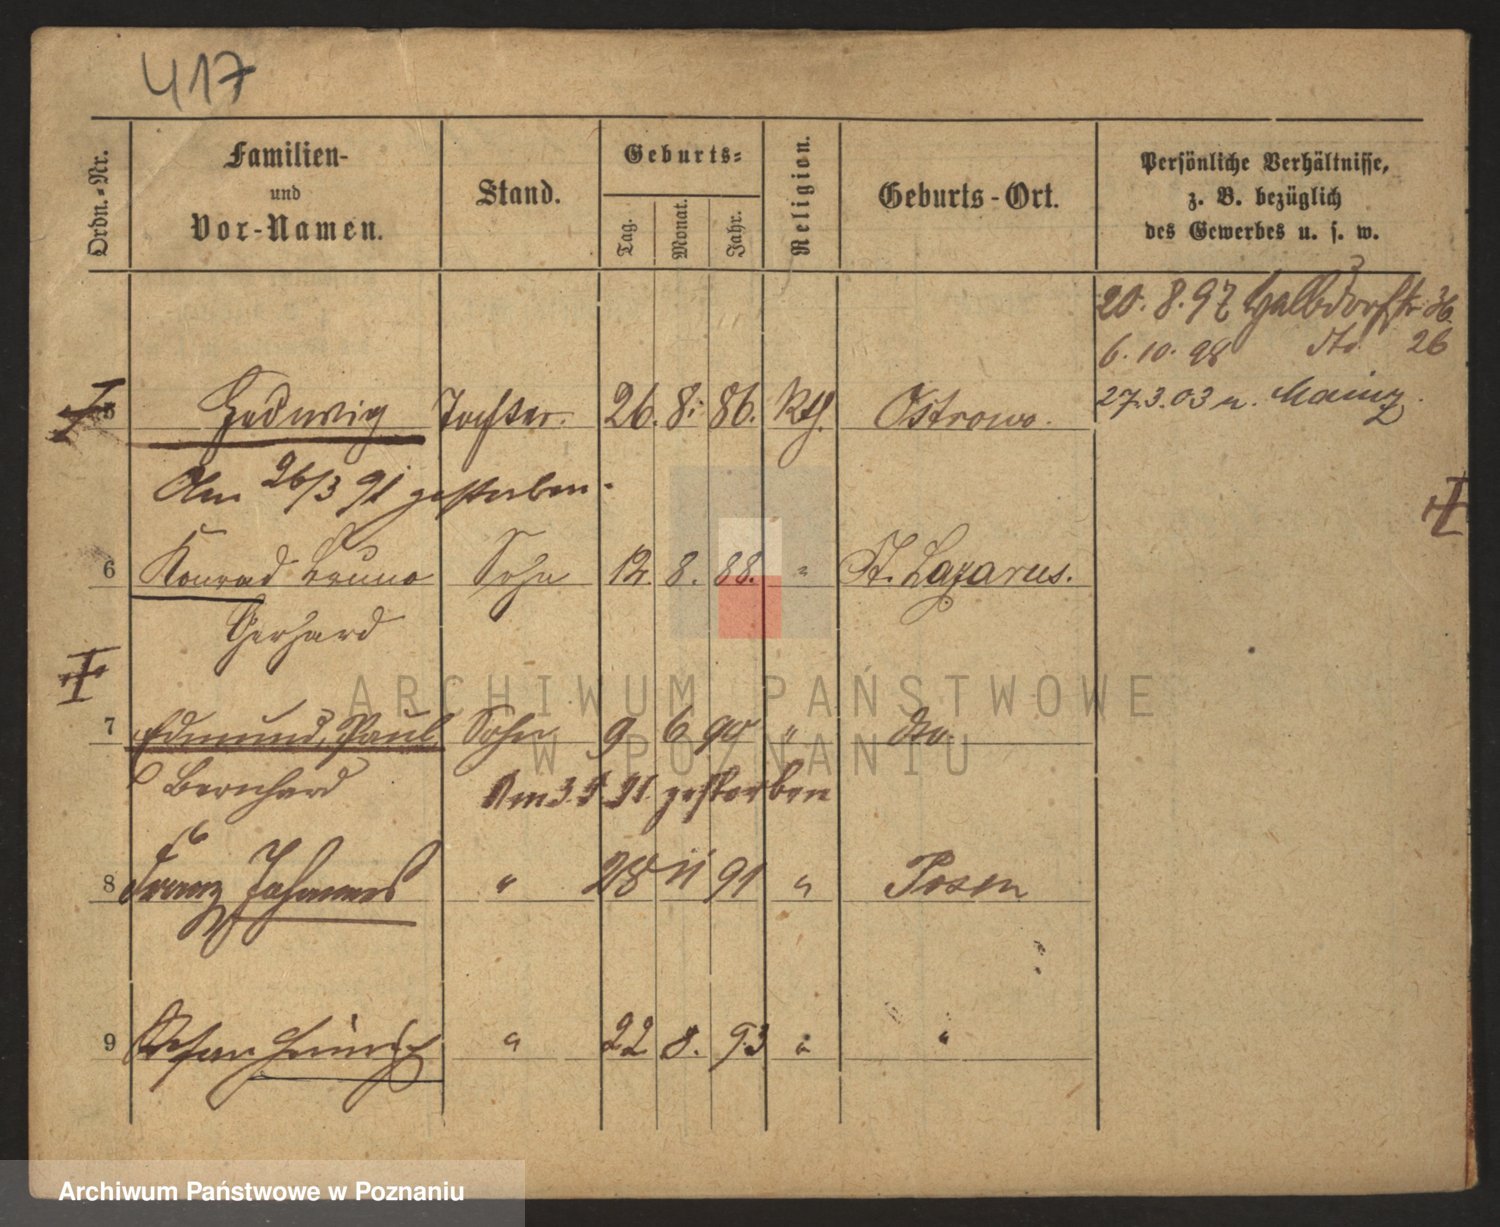 417
Ordn.-Nr.
Familien-
und
Vor-Namen.
Stand.
Geburts-
Tag.
Monat.
Jahr.
Religion.
Geburts-Ort.
Persönliche Verhältnisse,
z. B. bezüglich
des Gewerbes u. s. w.
20.8.97 Halbdorfstr. 36
6.10.98 dto 26
27.3.03 n. Mainz.
5 Hedwig Tochter. 26. 8. 86. kth. Ostrowo.
Am 26/3 91 gestorben.
6 Konrad Bruno Sohn 12. 8. 88. " St. Lazarus.
Gerhard
7 Edmund, Paul Sohn 9 6 90 " dto.
Bernhard Am 3.5 91. gestorben
8 Franz Johannes " 28 11 91 " Posen
9 Stefan Heinrich " 22 8. 93 " "
ARCHIWUM PAŃSTWOWE
W POZNANIU
Archiwum Państwowe w Poznaniu